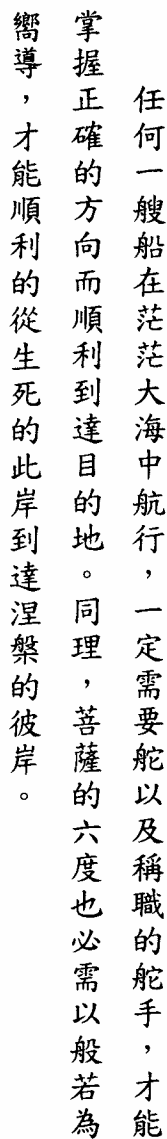 任何一艘船在茫茫大海中航行，一定需要舵以及稱職的舵手，才能
掌握正確的方向而順利到達目的地。同理，菩薩的六度也必需以般若為
嚮導，才能順利的從生死的此岸到達涅槃的彼岸。